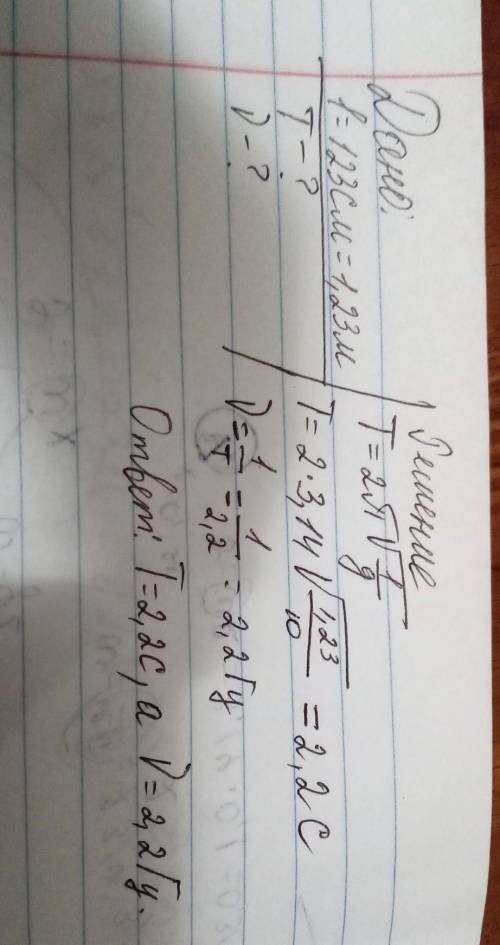 Дано:
l = 123см = 1,23м
T - ?
ν - ?
Решение
T = 2π√l/g
T = 2·3,14√1,23/10 = 2,2с
ν = 1/T = 1/2,2 = 2,2Гц
Ответ: T = 2,2с, а ν = 2,2Гц.